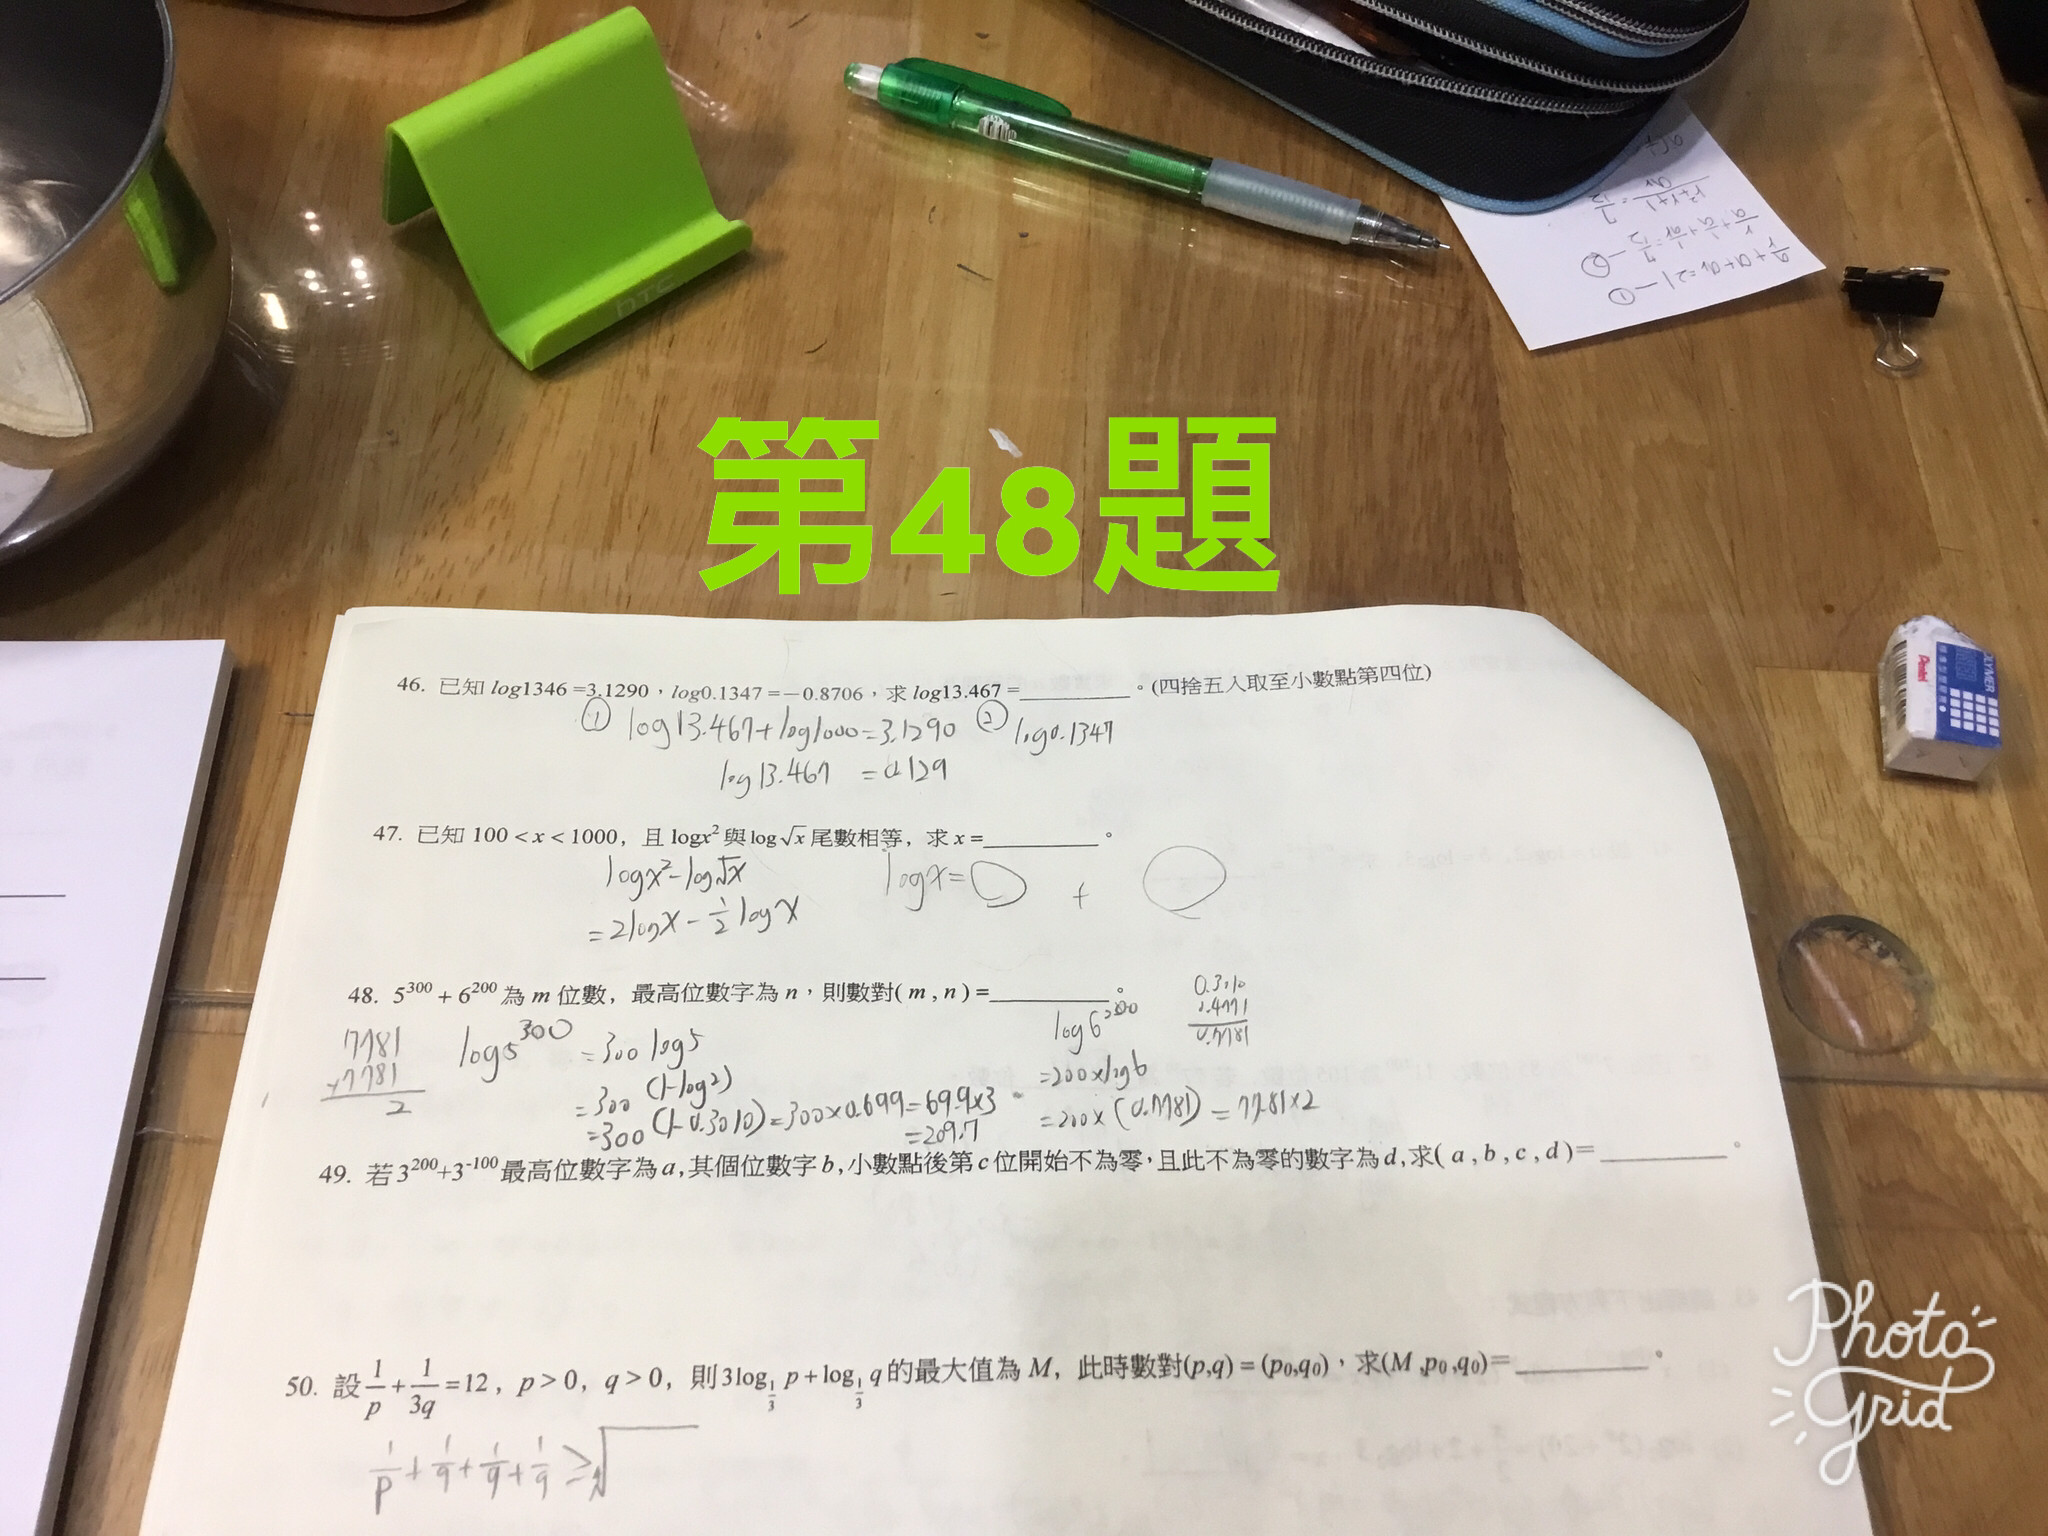 htc
第48題
46. 已知 log1346 =3.1290，log0.1347 =−0.8706，求 log13.467 =________。(四捨五入取至小數點第四位)
① log13.467+log1000=3.1290 ② log0.1347
log13.467 =0.129
47. 已知 100 < x < 1000，且 logx² 與 log√x 尾數相等，求 x =________。
logx²-log√x logx=○ + ○
=2logx - 1/2 logx
48. 5³⁰⁰ + 6²⁰⁰ 為 m 位數，最高位數字為 n，則數對( m , n ) =________。
0.3010
0.4771
0.7781
7781
+7781
2
log5³⁰⁰ =300 log5
=300 (1-log2)
=300 (1-0.3010)=300×0.699=69.9×3
=209.7
log6²⁰⁰
=200×log6
=200×(0.7781)=77.81×2
49. 若 3²⁰⁰+3⁻¹⁰⁰ 最高位數字為 a,其個位數字 b,小數點後第 c 位開始不為零，且此不為零的數字為 d,求( a , b , c , d )=________。
50. 設 1/p + 1/3q =12，p > 0，q > 0，則 3log_{1/3} p + log_{1/3} q 的最大值為 M，此時數對(p,q) = (p₀,q₀)，求(M ,p₀,q₀)=________。
1/p + 1/q + 1/q + 1/q ≥ √
Pentel
Photo
Grid